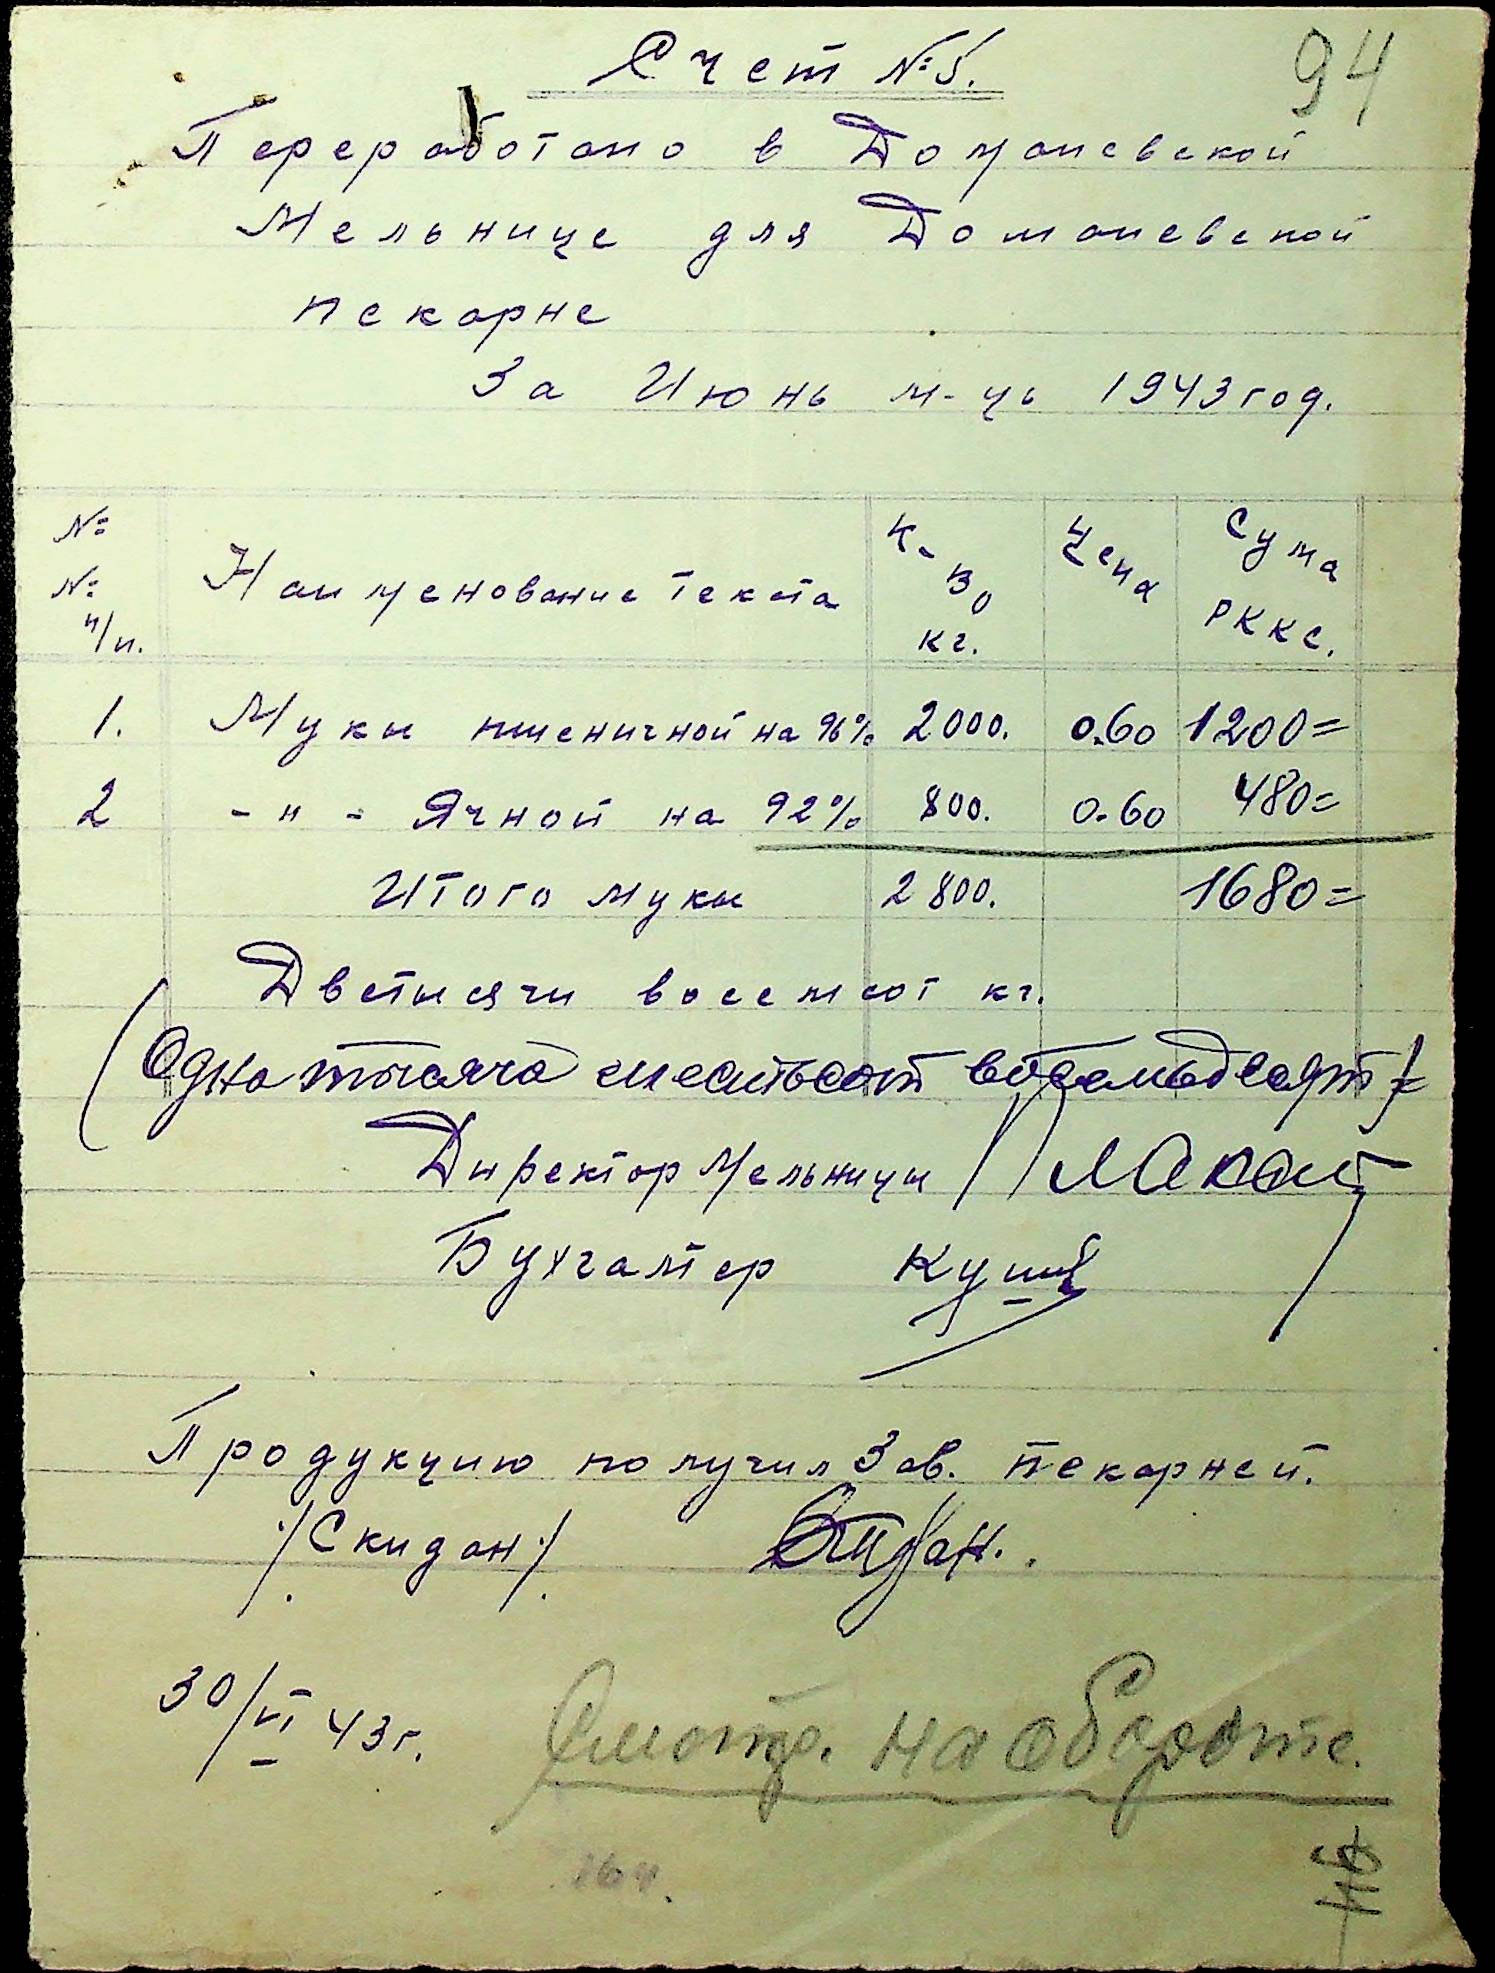 94
Счет №5.
Переработано в Доманевской
Мельнице для Доманевской
пекарне
За Июнь м-ць 1943 год.
№ № п/п. Наименование текста К-во кг. Цена Сума РККС.
1. Муки пшеничной на 96% 2000. 0.60 1200=
2 -"- Ячной на 92% 800. 0.60 480=
Итого муки 2800. 1680=
Две тысячи восемсот кг.
(Одна тысяча шестьсот восемьдесят)
Директор Мельницы
Бухгалтер
Продукцию получил Зав. пекарней.
/Скидан/
30/VI 43 г.
Смотр. на обороте.